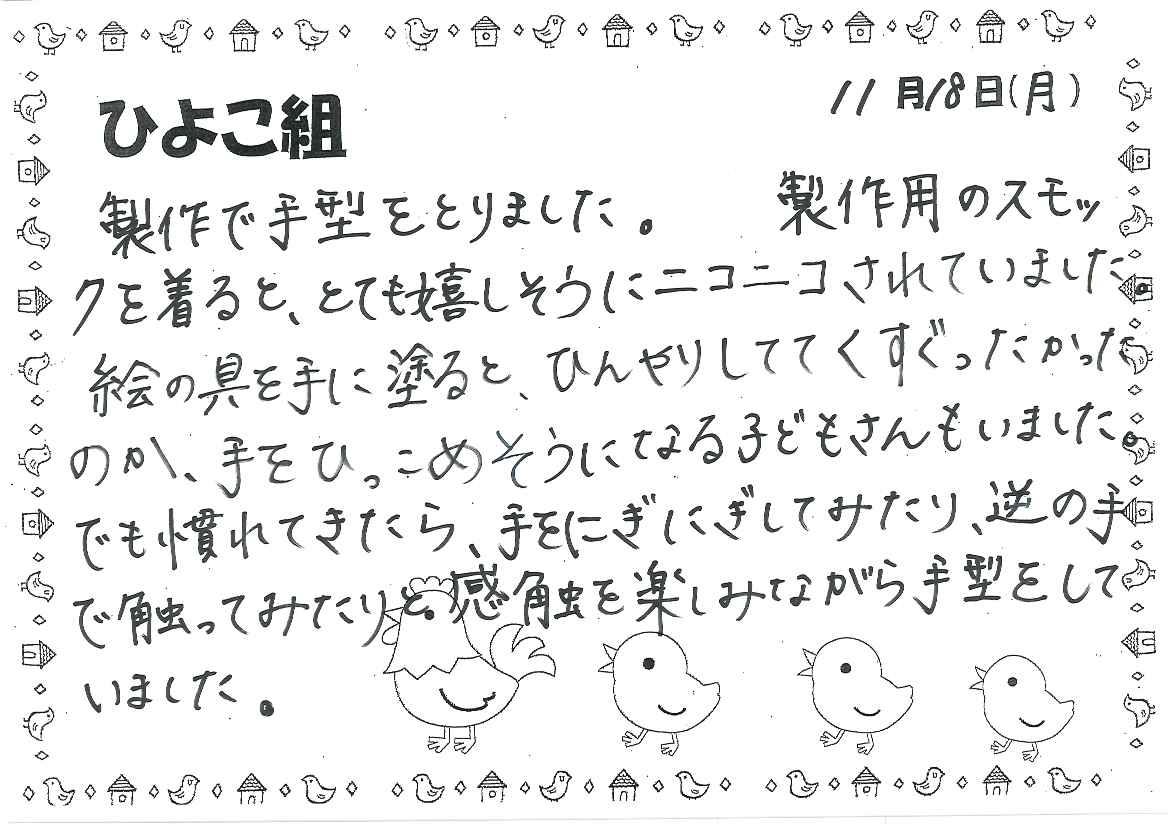 11月18日(月)
ひよこ組
製作で手型をとりました。 製作用のスモッ
クを着ると、とても嬉しそうにニコニコされていました。
絵の具を手に塗ると、ひんやりしててくすぐったかった
のか、手をひっこめそうになる子どもさんもいました。
でも慣れてきたら、手をにぎにぎしてみたり、逆の手
で触ってみたりと、感触を楽しみながら手型をして
いました。